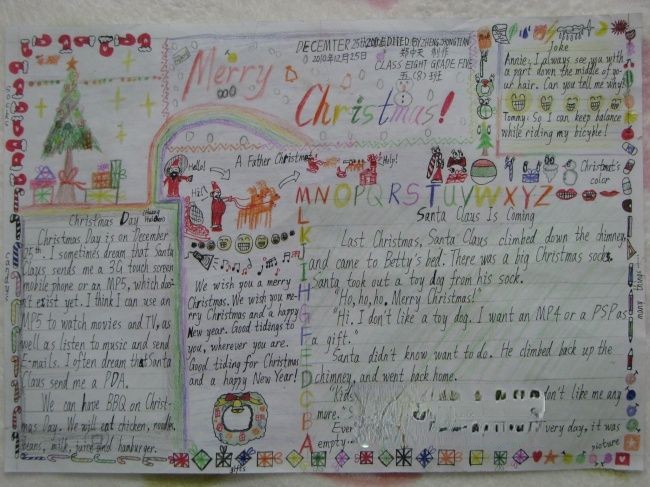 Merry
Christmas!
DECEMTER 25th 2010 EDITED BY ZHENG ZHONGTIAN
2010年12月25日 郑中天 制作
CLASS EIGHT GRADE FIVE
五(8)班
joke
Annie: I always see you with
a part down the middle of yo-
ur hair. Can you tell me why?
Tommy: So I can keep balance
while riding my bicyble!
Hello!
A Father Christmas!
Help!
Hi!
Christmat's
color
MNOPQRSTUVWXYZ
L
K
J
I
H
G
F
E
D
C
B
A
Christmas Day
Christmas Day is on December
25th. I sometimes dream that Santa
Claus sends me a 3G touch screen
mobile phone or an MP5, which doe-
sn't exist yet. I think I can use an
MP5 to watch movies and TV, as
well as listen to music and send
E-mails. I often dream that Santa
Claus send me a PDA.
We can have BBQ on Christ-
mas Day. We will eat chicken, noodle
beans, milk, juice and hamburger.
We wish you a merry
Christmas. We wish you me-
rry Christmas and a happy
New year. Good tidings to
you, wherever you are.
Good tiding for Christmas
and a happy New Year!
Santa Claus Is Coming
Last Christmas, Santa Claus climbed down the chimney
and came to Betty's bed. There was a big Christmas socks.
Santa took out a toy dog from his sock.
"Ho, ho, ho. Merry Christmas!"
"Hi. I don't like a toy dog. I want an MP4 or a PSP as
a gift."
Santa didn't know want to do. He climbed back up the
chimney, and went back home.
"Kids don't like me any
more."
Ever very day, it was
empty.
many things
picture
gifts